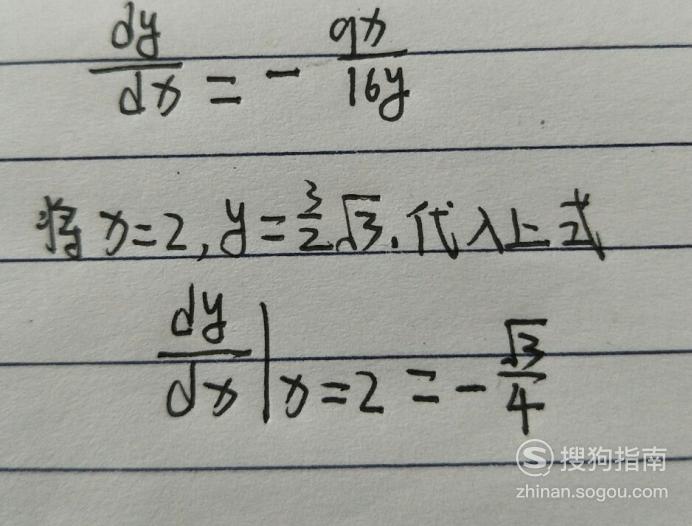 dy/dx = - 9x/16y
将 x=2, y=3/2√3. 代入上式
dy/dx|x=2 = - √3/4
搜狗指南
zhinan.sogou.com